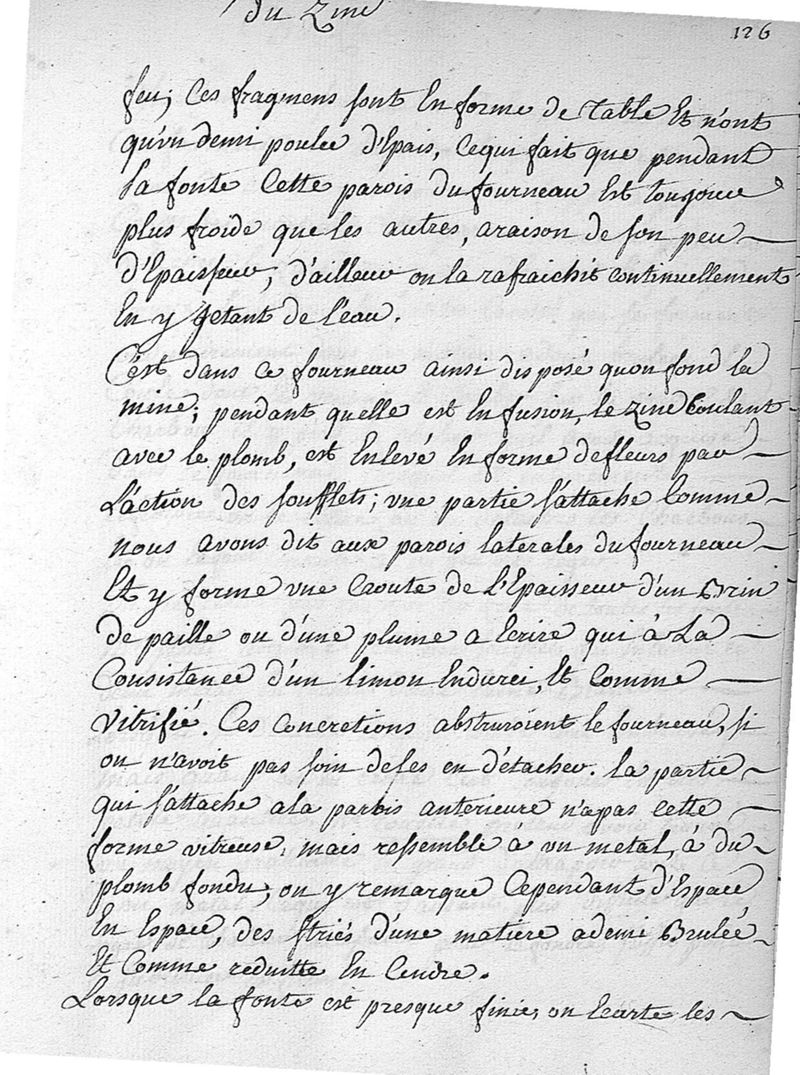 du Zinc
126
feu; Ces fragmens sont En forme de Table Et n'ont
qu'vn demi poulce d'Epais, Cequi fait que pendant
la fonte Cette parois du fourneau Est toujours
plus froide que les autres, araison de son peu
d'Epaisseur; d'ailleur on la rafraichit continuellement
En y jetant de l'eau.
C'est dans ce fourneau ainsi disposé quon fond la
mine; pendant quelle est En fusion, le zinc Coulant
avec le plomb, est Enlevé En forme de fleurs par
L'action des soufflets; vne partie s'attache Comme
nous avons dit aux parois laterales du fourneau
Et y forme vne Croute de L'Epaisseur d'un Brin
de paille ou d'une plume a Ecrire qui à La
Consistance d'un limon Endurci, Et Comme
Vitrifié. Ces concretions abstruroient le fourneau, si
on n'avoit pas soin de les en d'étacher. la partie
qui s'attache ala parois anterieure n'apas cette
forme vitreuse, mais ressemble à vn metal, à du
plomb fondu; on y remarque Cependant d'Espace
En Espace, des striés d'une matiere ademi Brulée
Et Comme reduitte En Cendre.
Lorsque la fonte est presque finie, on Ecarte les